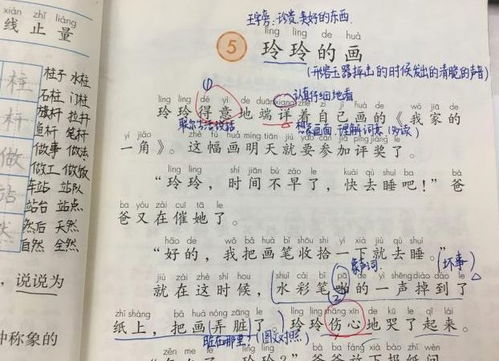 xiàn zhǐ liàng
线 止 量
柱
杆
做
站
柱子 水柱
石柱 门柱
旗杆 拉杆
笔杆
做事 做法
做工 做饭
车站 站队
站台 站点
然后 天然
自然 全然
说说为
称象的
王字旁:珍贵、美好的东西
líng líng de huà
5 玲玲的画
(形容玉器掉击的时候发出的清脆的声音)
认真仔细地看
líng líng dé yì de duān xiáng zhe zì jǐ huà de wǒ jiā de
玲玲得意地端详着自己画的《我家的
联系生活说话
想象画面 理解词意
yì jiǎo zhè fú huà míng tiān jiù yào cān jiā píng jiǎng le
一角》。这幅画明天就要参加评奖了。
líng líng shí jiān bù zǎo le kuài qù shuì ba bà
“玲玲,时间不早了,快去睡吧!”爸
ba yòu zài cuī tā le
爸又在催她了。
hǎo de wǒ bǎ huà bǐ shōu shi yí xià jiù qù shuì
“好的,我把画笔收拾一下就去睡。”
象声词
(坏事)
jiù zài zhè shí hou shuǐ cǎi bǐ pā de yì shēng diào dào le
就在这时候,水彩笔啪的一声掉到了
zhǐ shàng bǎ huà nòng zāng le líng líng shāng xīn de kū le qǐ lái
纸上,把画弄脏了。玲玲伤心地哭了起来。
脏在哪里?(图文对照)
zěn me le bà ba fàng xià bào zhǐ wèn